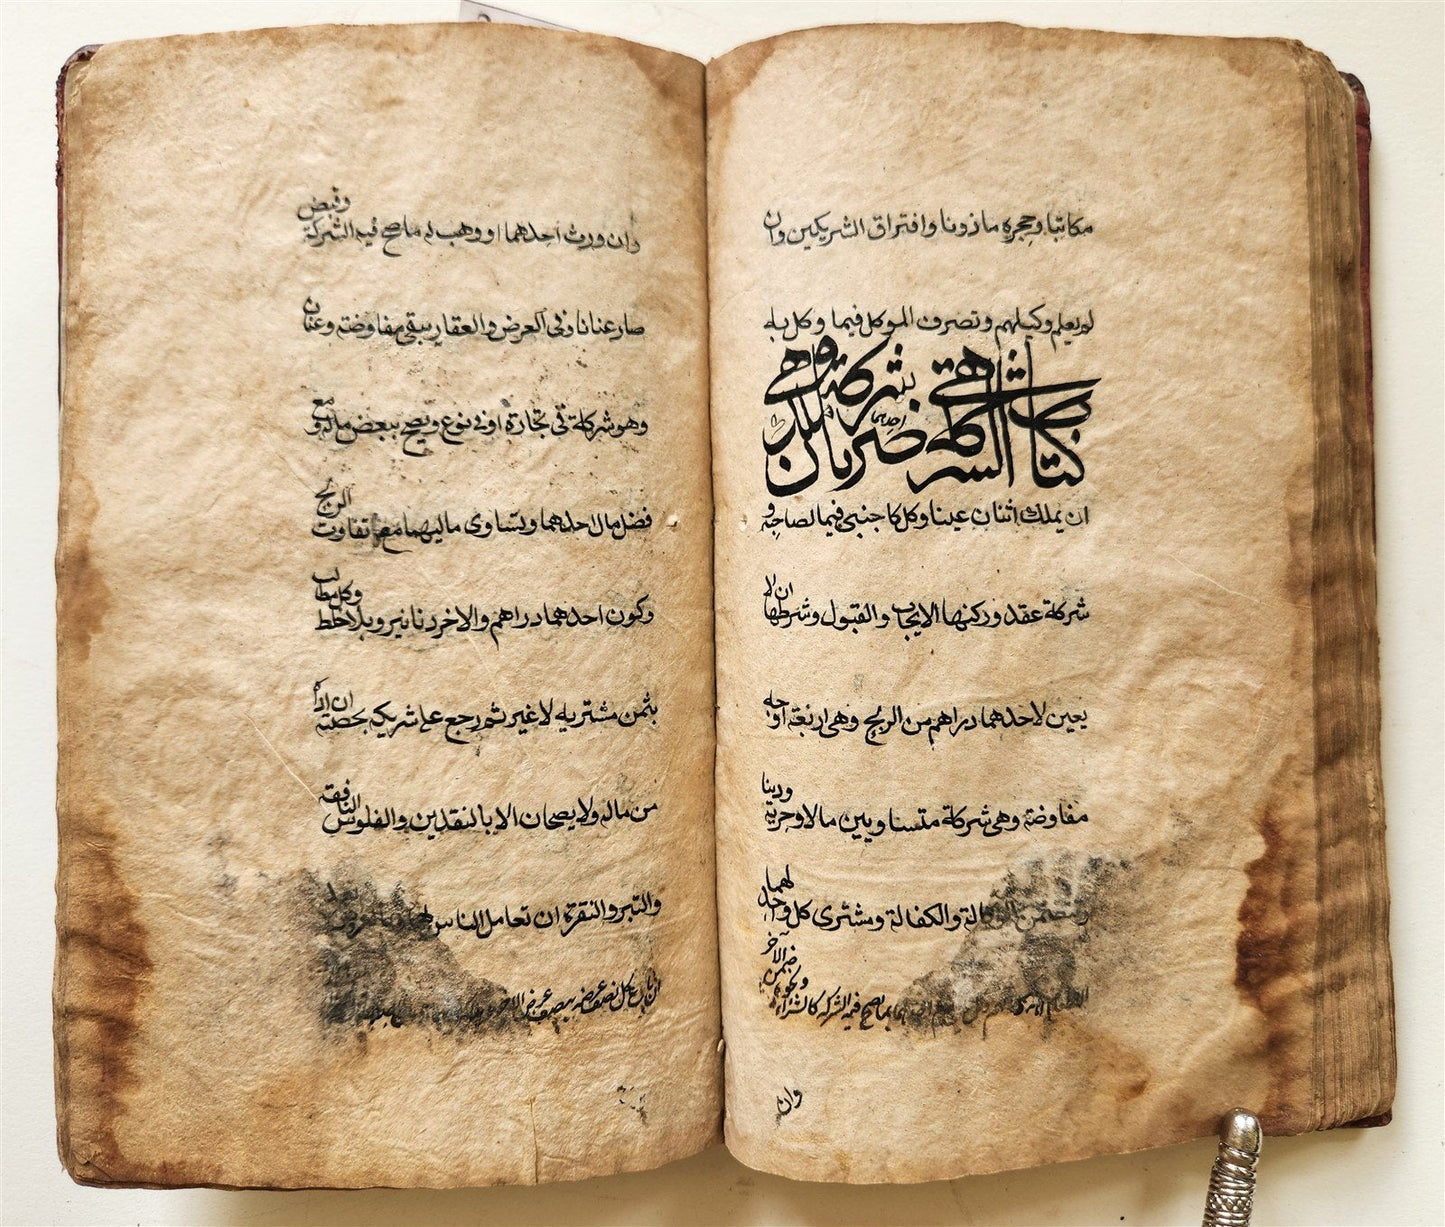 مكاتبا وحجره ماذونا وافتراق الشريكين وان
لم يعلم وكيلهم وتصرف الموكل فيما وكل به
كتاب الشركة هي ضربان شركة
احديهما
ان يملك اثنان عينا وكل كاجنبي فيما لصاحبه و
شركة عقد وركنها الايجاب والقبول وشرطها ان لا
يعين لاحدهما دراهم من الربح وهي اربعة اوجه
مفاوضة وهي شركة متساويين مالا وحرية ودينا
وتتضمن الوكالة والكفالة ومشترى كل واحد لهما
بما تصح فيه الشركة كالشراء ضمن الآخر
وان
وان ورث احدهما او وهب له ما صح فيه الشركة وقبض
صار عنانا وفي العرض والعقار يبقى مفاوضة وعنان
وهو شركة في تجارة او في نوع ويصح ببعض ماله و مع
فضل مال احدهما وبتساوى ماليهما مع تفاوت الربح
وكون احدهما دراهم والاخر دنانير وبلا خلط وكل مطالب
بثمن مشتريه لا غير ثم رجع على شريكه بحصته ان اداه
من ماله ولا يصحان الا بالنقدين والفلوس النافقة
والتبر والنقرة ان تعامل الناس
ان باع كل نصف عرضه بنصف عرض الاخر